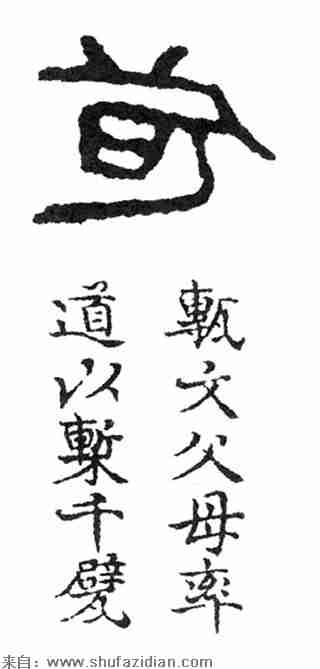 甎文父母率
道以槧千甓
来自：www.shufazidian.com